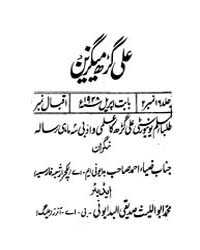 علی گڑھ میگزین
جلد ۱۶ نمبر ۲ بابت اپریل ۱۹۳۸ء اقبال نمبر
طلبا مسلم یونیورسٹی علی گڑھ کا علمی و ادبی سہ ماہی رسالہ
نگران
جناب ضیاء احمد صاحب بدایونی ایم۔ اے لکچرر شعبہ فارسی
ایڈیٹر
محمد ابواللیث صدیقی البدایونی ۔ بی ۔ اے ۔ آنرز